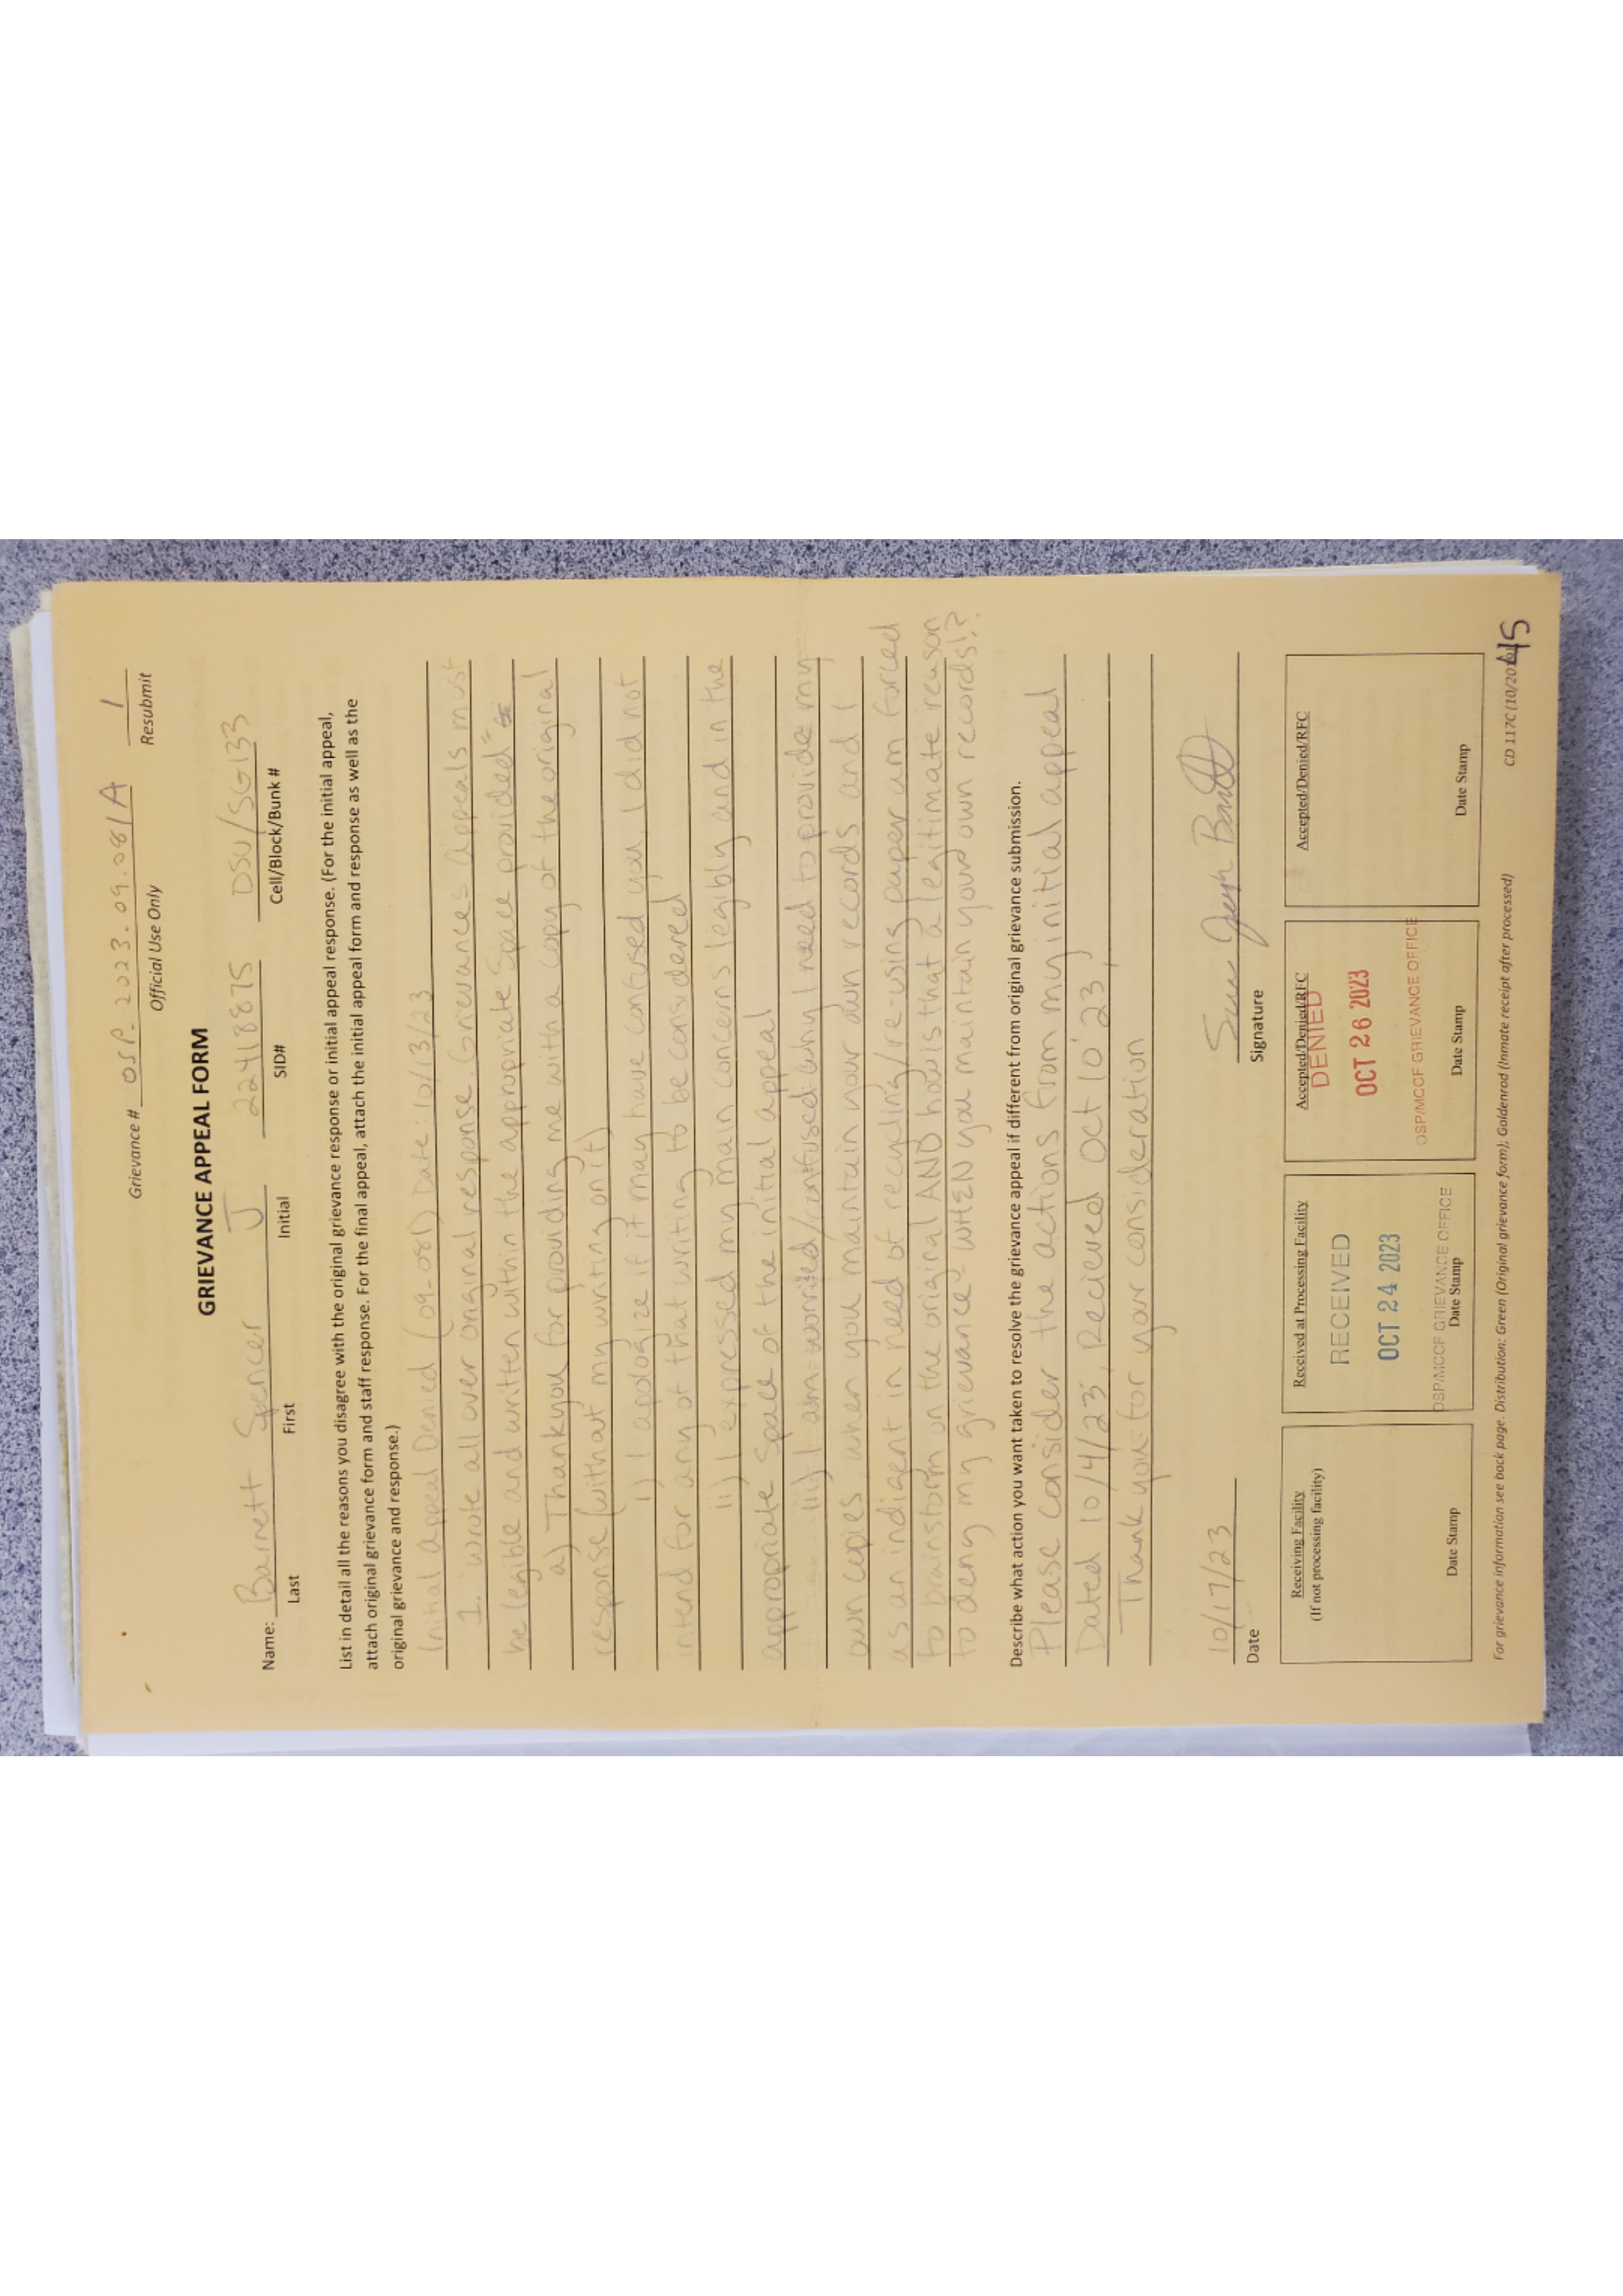 Grievance # OSP. 2023.09.081A 1
Official Use Only Resubmit
GRIEVANCE APPEAL FORM
Name: Barnett Spencer J 22418875 DSU/SG133
Last First Initial SID# Cell/Block/Bunk #
List in detail all the reasons you disagree with the original grievance response or initial appeal response. (For the initial appeal,
attach original grievance form and staff response. For the final appeal, attach the initial appeal form and response as well as the
original grievance and response.)
Initial appeal Denied (09-081) Date: 10/13/23
1. "wrote all over original response. Grievances Appeals must
be legible and written within the appropriate space provided"
a) Thankyou for providing me with a copy of the original
response (without my writing on it)
i) I apologize if it may have confused you, I did not
intend for any of that writing to be considered
ii) I expressed my main concerns legibly and in the
appropriate space of the initial appeal
iii) I am worried/confused why I need to provide my
own copies, when you maintain your own records and I
as an indigent in need of recycling/re-using paper am forced
to brainstorm on the original AND how is that a legitimate reason
to deny my grievance WHEN you maintain your own records!?
Describe what action you want taken to resolve the grievance appeal if different from original grievance submission.
Please consider the actions from my initial appeal
Dated 10/4/23, Recieved Oct 10 '23,
Thank you for your consideration
10/17/23
Date Signature
Receiving Facility
(If not processing facility)
Date Stamp
Received at Processing Facility
RECEIVED
OCT 24 2023
OSP/MCCF GRIEVANCE OFFICE
Date Stamp
Accepted/Denied/RFC
DENIED
OCT 26 2023
OSP/MCCF GRIEVANCE OFFICE
Date Stamp
Accepted/Denied/RFC
Date Stamp
For grievance information see back page. Distribution: Green (Original grievance form); Goldenrod (Inmate receipt after processed) CD 117C (10/20
45